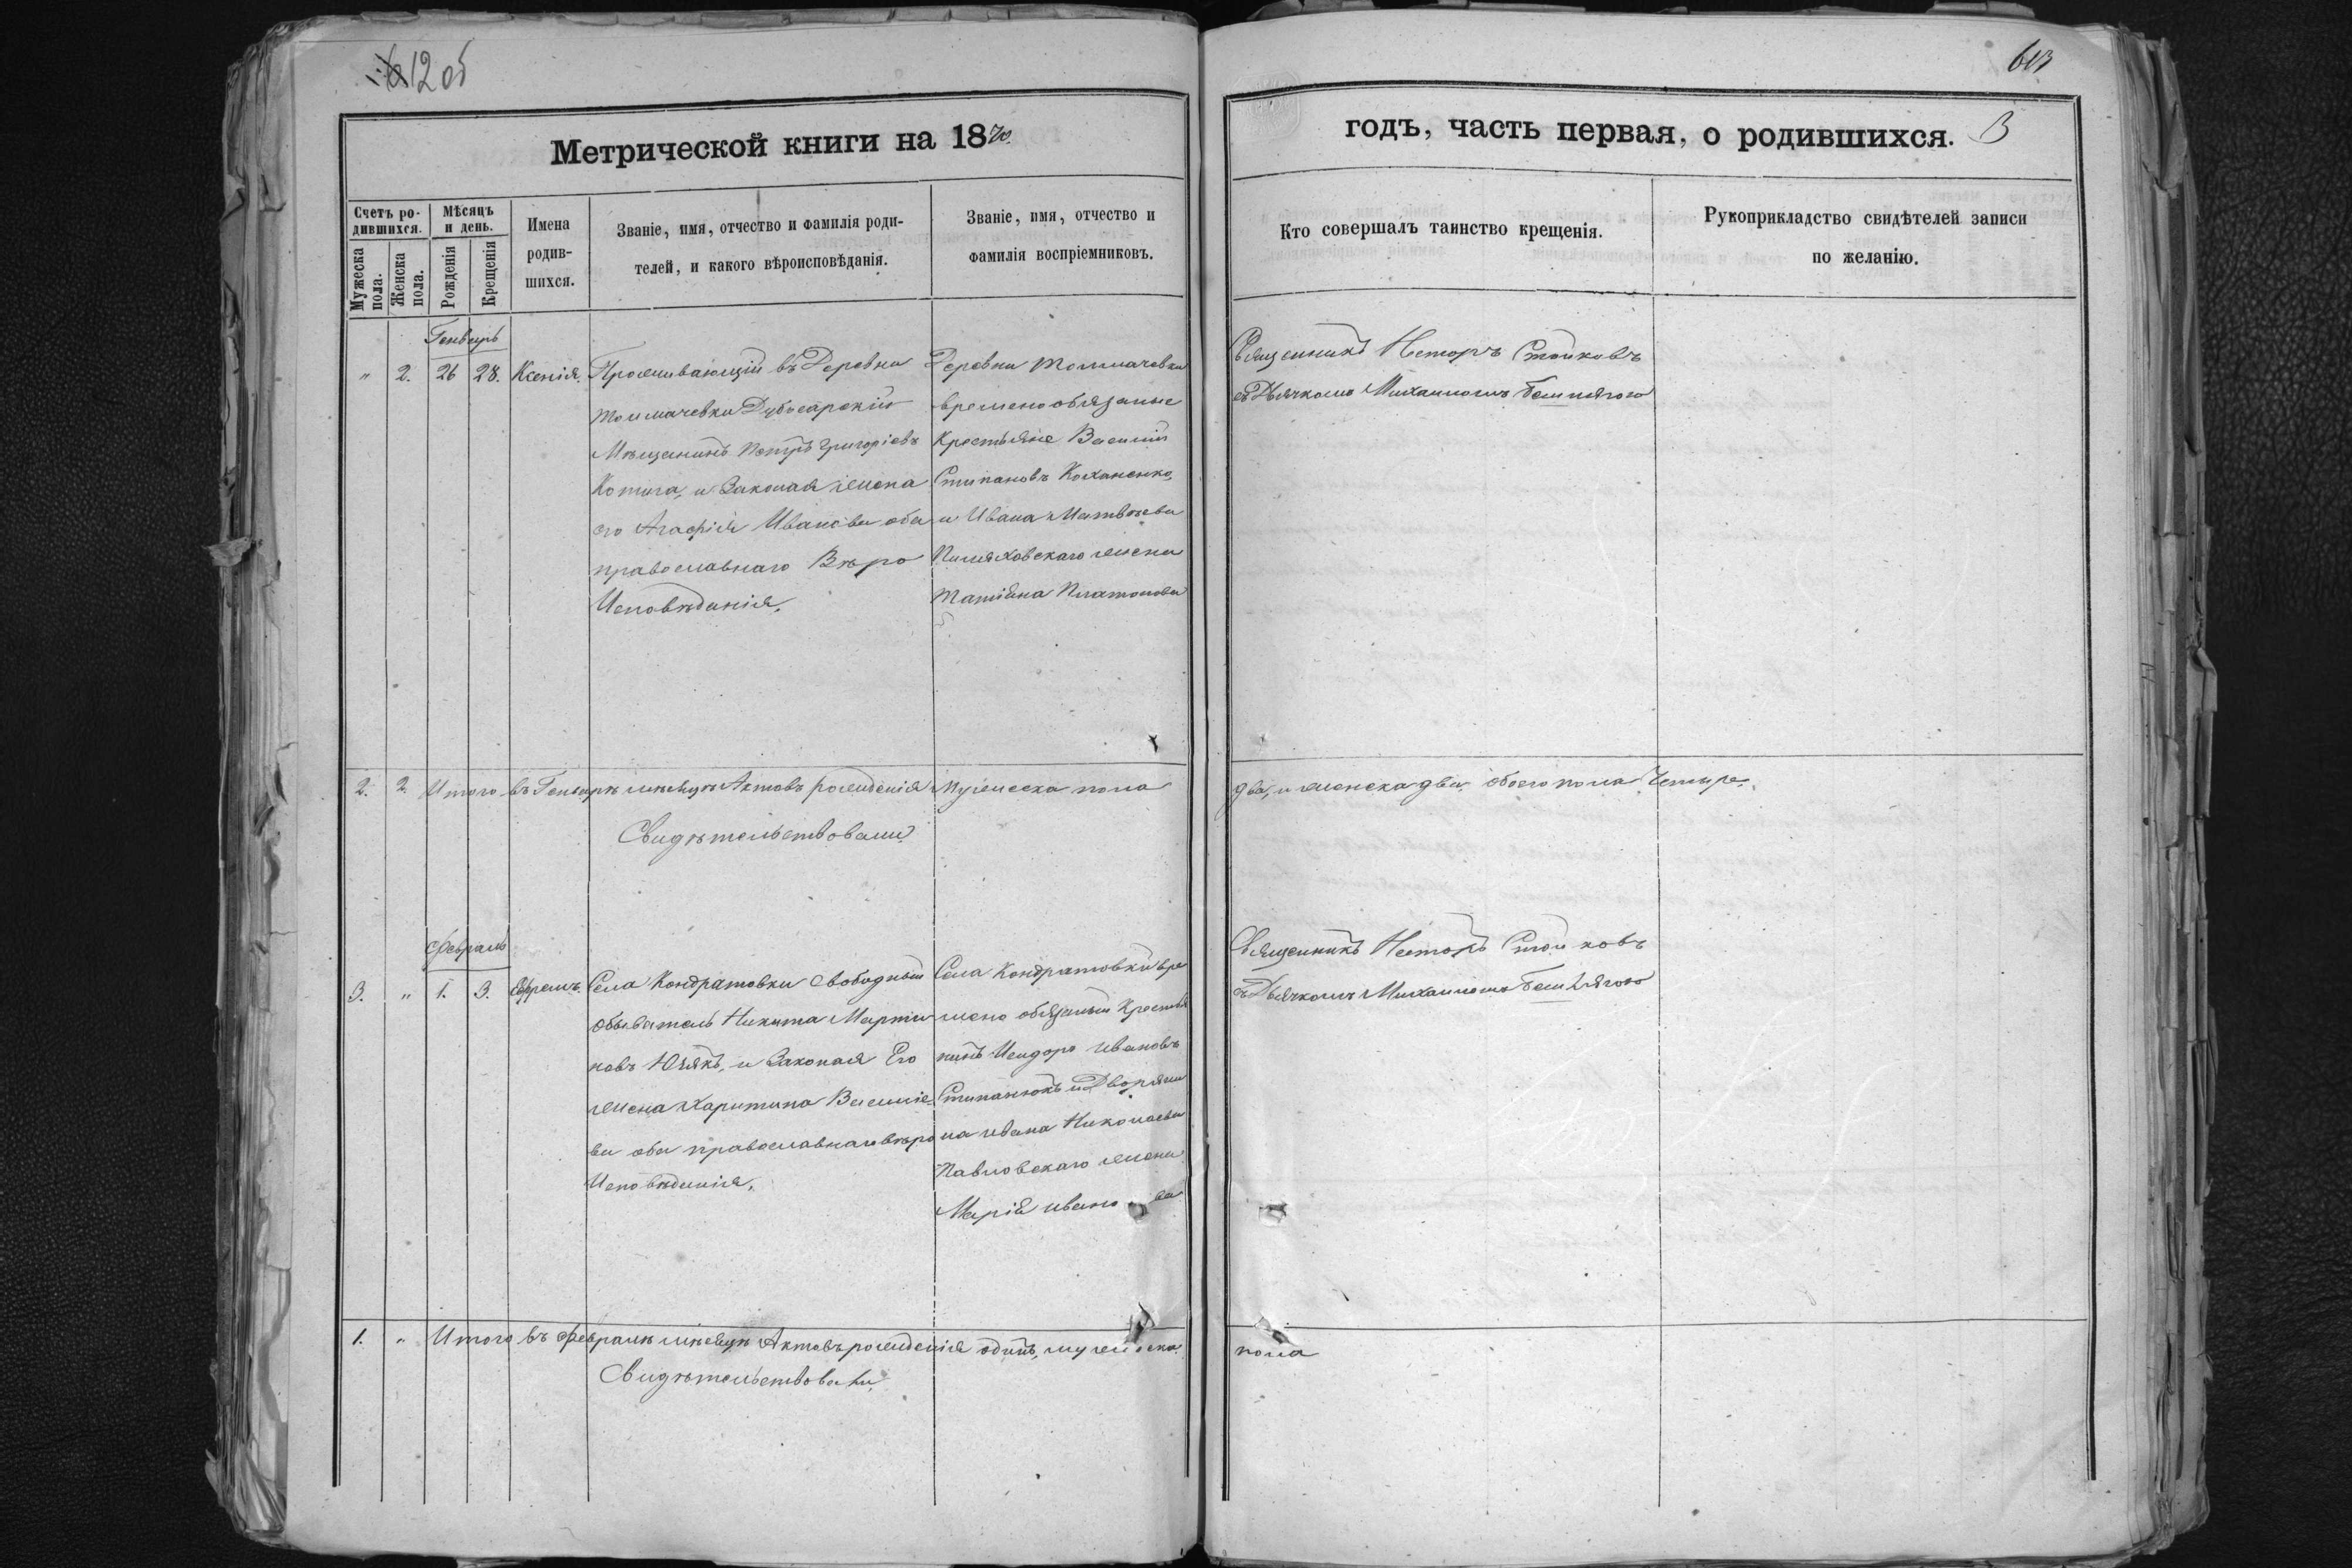 12 об
613
Метрической книги на 1870.
годъ, часть первая, о родившихся. 3
Счетъ ро-
дившихся.
Мужеска
пола.
Женска
пола.
Мѣсяцъ
и день.
Рожденія
Крещенія
Имена
родив-
шихся.
Званіе, имя, отчество и фамилія роди-
телей, и какого вѣроисповѣданія.
Званіе, имя, отчество и
фамилія воспріемниковъ.
Кто совершалъ таинство крещенія.
Рукоприкладство свидѣтелей записи
по желанію.
Генварь
" 2. 26 28. Ксенія.
Проживающій въ Деревни
Толмачевки Дубосарскій
Мѣщанинъ Петръ Григоріевъ
Котига, и Законая жена
его Агафія Иванова оба
православнаго Вѣро
Исповѣданія.
Деревни Толмачевки
временообязаные
Крестьяне Василій
Стипановъ Коханенко,
и Ивана Матвѣева
жена
Татіяна Платонова
Священникъ Несторъ Стойковъ
съ Дьячкомъ Михаиломъ
2. 2. Итого въ Генварѣ мѣсяцѣ Актовъ рожденія мужеска пола
два, и женска два, обоего пола Четыре.
Свидѣтельствовали
Февраль
3. " 1. 3. Ефремъ.
Села Кондратовки свободный
обыватель Никита Марти
новъ Юзякъ, и Законая Его
жена Харитина Василіе
ва оба православнаго вѣро
Исповѣданія.
Села Кондратовки вре
мено обязаный Крестья
нинъ Исидоръ Ивановъ
Стипанюкъ и Дворяни
на Ивана Николаева
Павловскаго жена
Марія Иванова
Священникъ Несторъ Стойковъ
съ Дьячкомъ Михаиломъ
1. " Итого въ Февралѣ мѣсяцѣ Актовъ рожденія одинъ, мужеска
пола
Свидѣтельствовали